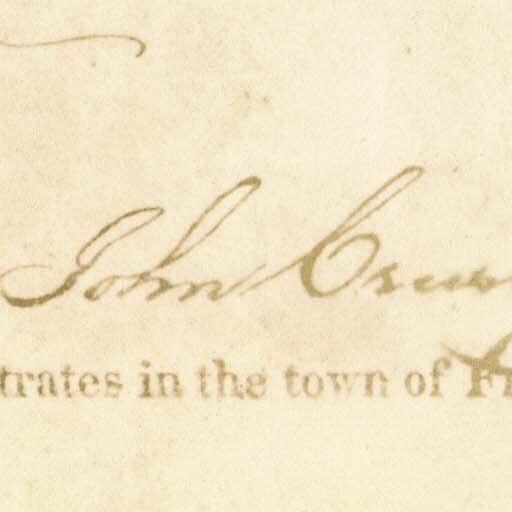 John
trates in the town of